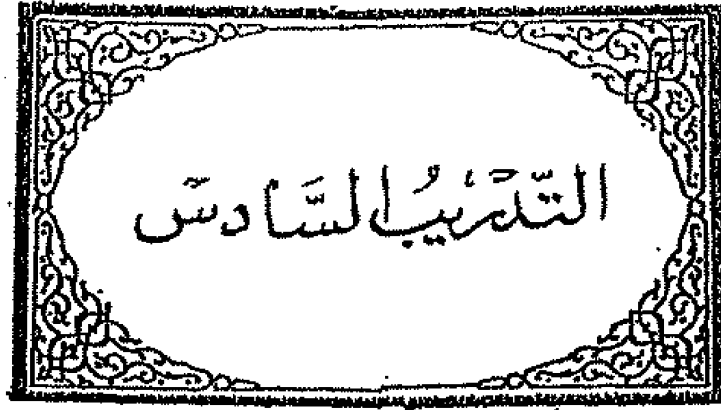 التَّدْرِيبُ السَّادِسُ